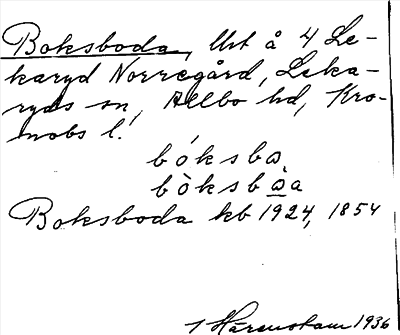 Boksboda, Urt å 4 Le-
karyd Norregård, Leka-
ryds sn, Allbo hd, Kro-
nobs l.
bóksba
bòksbɷ̀a
Boksboda kb 1924, 1854
1936